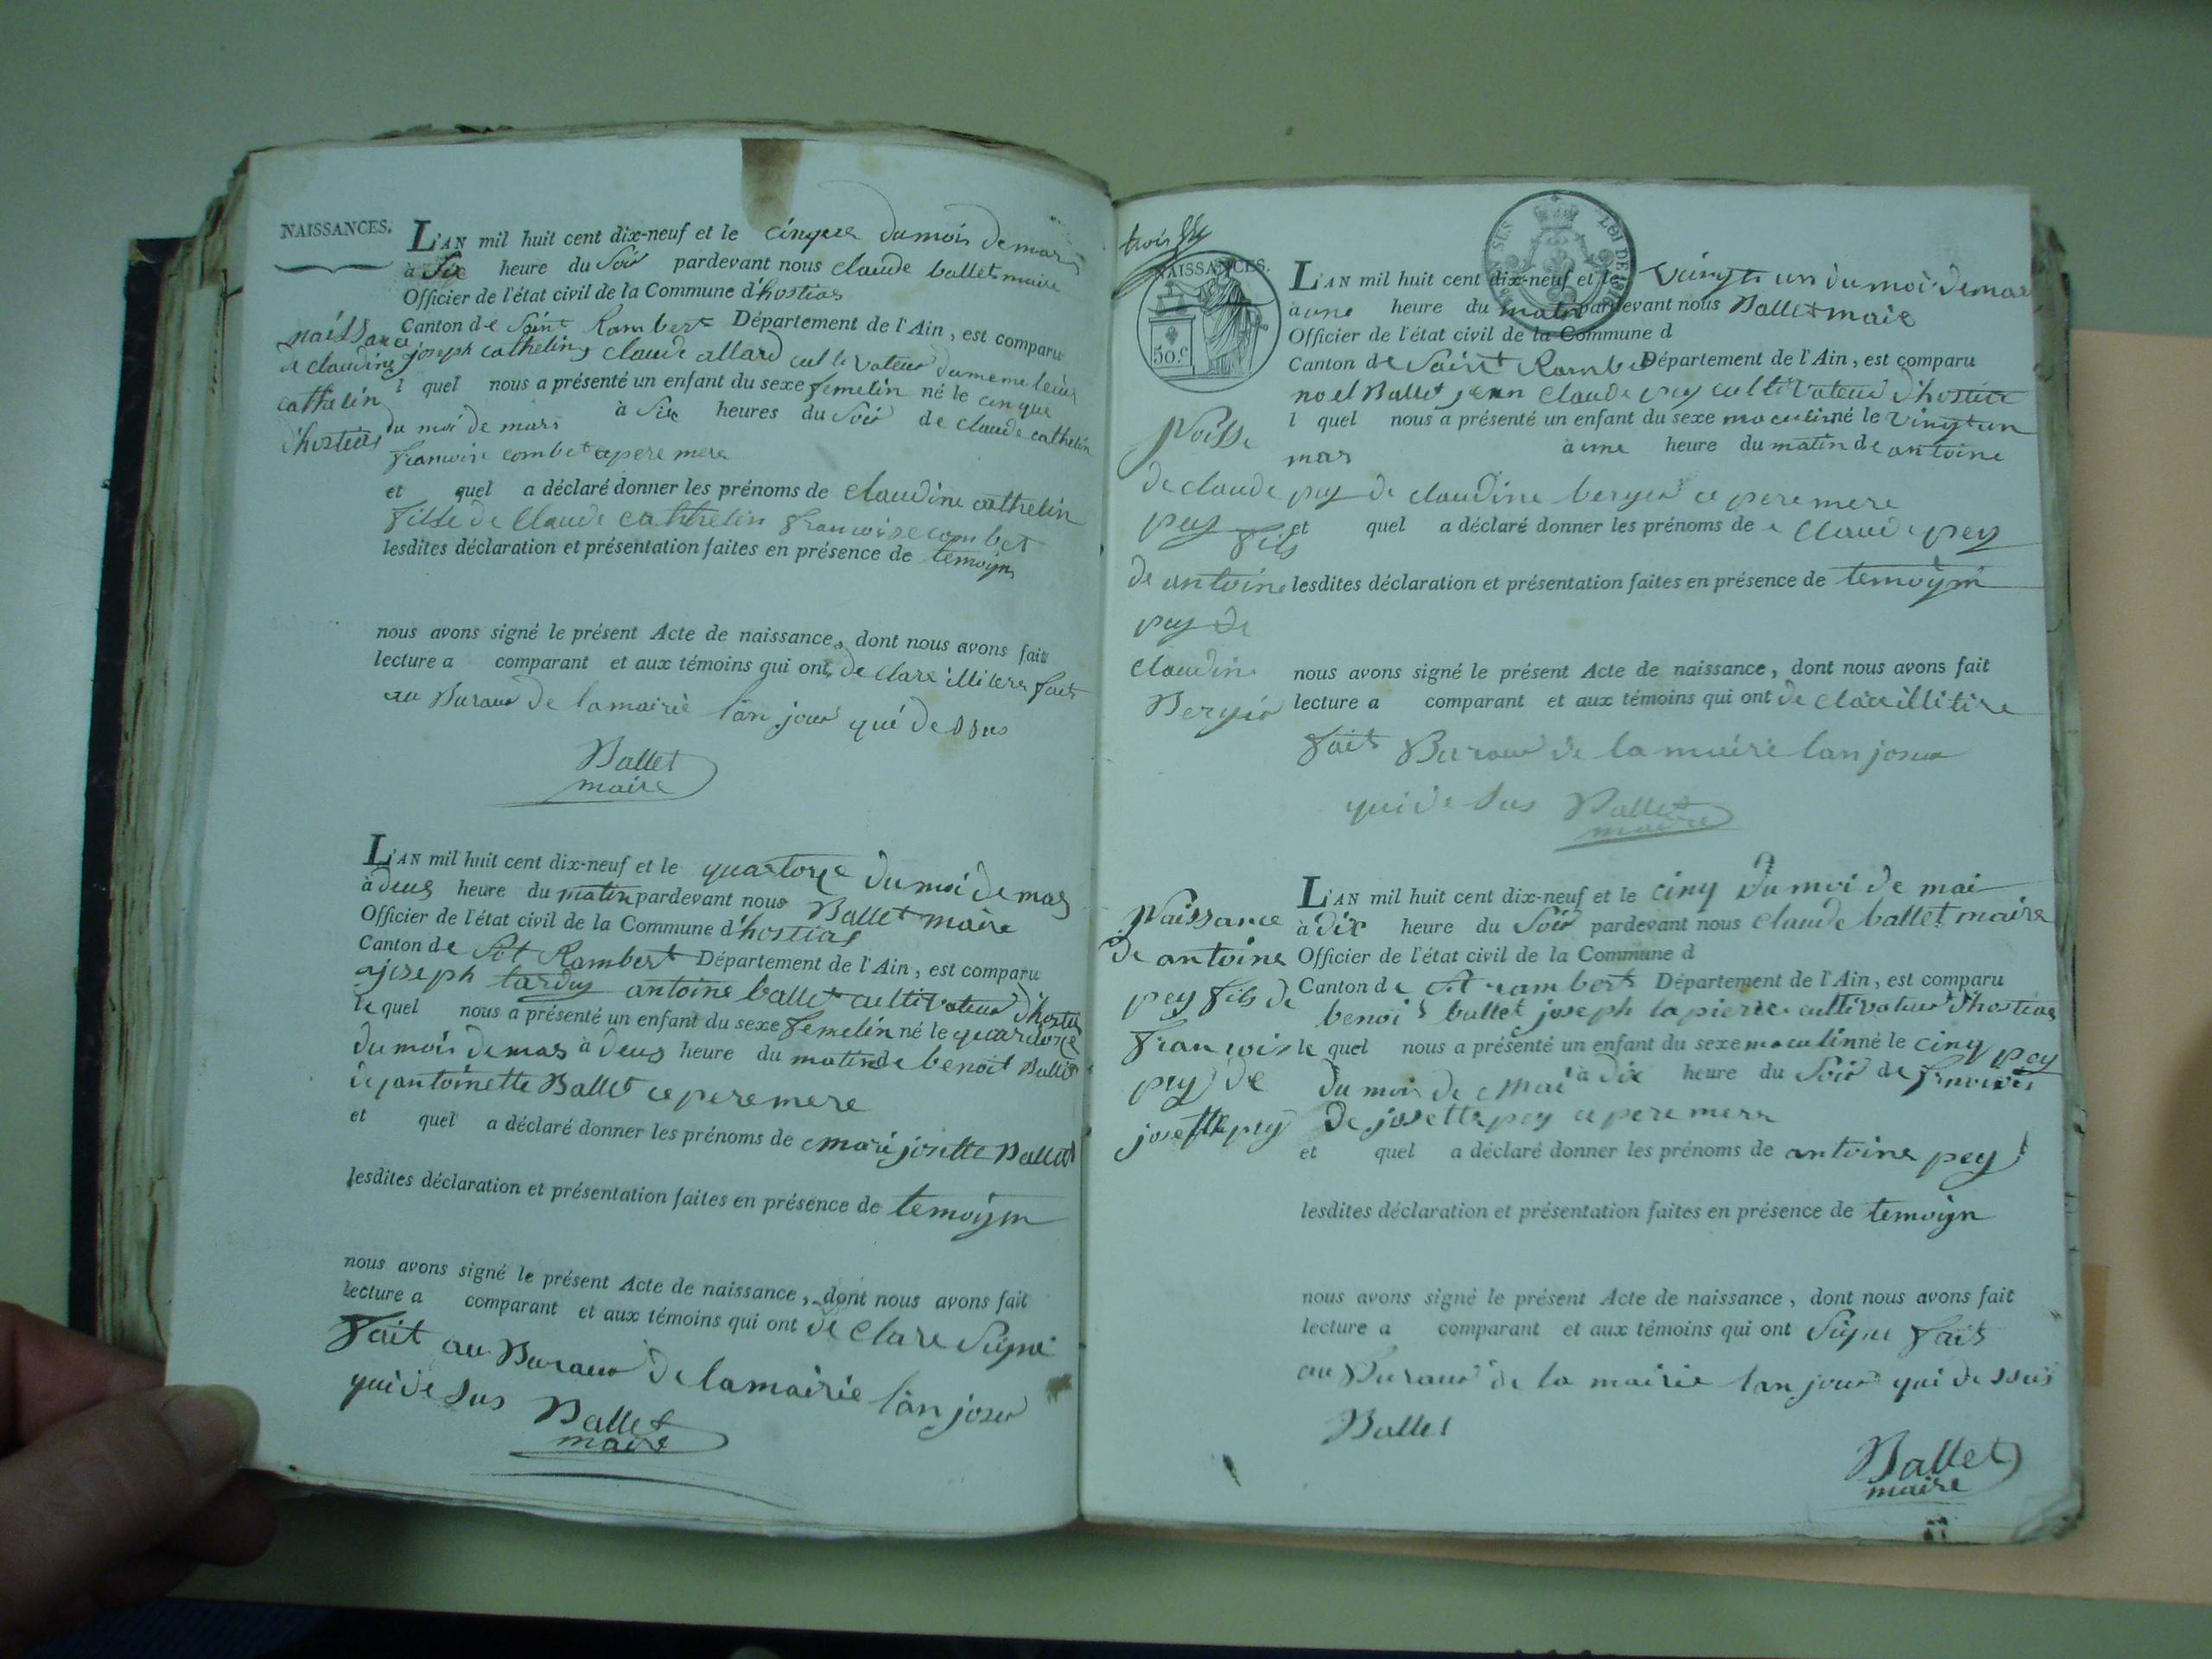 NAISSANCES.
L'AN mil huit cent dix-neuf et le cinque du mois de mars
à Six heure du Soir pardevant nous claude ballet maire
Officier de l'état civil de la Commune d'hostias
Canton de Saint Rambert Département de l'Ain, est comparu
joseph cathelin claude allard cultivateur du meme leius
l quel nous a présenté un enfant du sexe femelin né le cinque
du moi de mars à Six heures du Soir de claude cathelin
francoise combet ce pere mere
et quel a déclaré donner les prénoms de claudine cathelin
fille de claude cathelin francoise combet
lesdites déclaration et présentation faites en présence de temoign
nous avons signé le présent Acte de naissance, dont nous avons fait
lecture a comparant et aux témoins qui ont de clare illitere fait
au Buraur de lamairie lan jour qui dessus
Ballet
maire
naissance
de claudine
cathelin
d'hostias
L'AN mil huit cent dix-neuf et le quastorze du moi de mas
à deus heure du matin pardevant nous Ballet maire
Officier de l'état civil de la Commune d'hostias
Canton de St Rambert Département de l'Ain, est comparu
joseph tarduy antoine ballet cultivateur d'hostias
le quel nous a présenté un enfant du sexe femelin né le quardorze
du mois de mas à deus heure du matin de benoit Ballet
de antoinette Ballet ce pere mere
et quel a déclaré donner les prénoms de marie josette Ballet
lesdites déclaration et présentation faites en présence de temoign
nous avons signé le présent Acte de naissance, dont nous avons fait
lecture a comparant et aux témoins qui ont de clare Signé
fait au Buraur de lamairie lan jour
qui de sus Ballet
maire
trois
NAISSANCES.
50.c
LOI DE
L'AN mil huit cent dix-neuf et le vingt un du moi de mas
à une heure du matin pardevant nous Ballet maie
Officier de l'état civil de la Commune d
Canton de Saint Rambert Département de l'Ain, est comparu
noel Ballet jean claude pey cultivateur d'hostias
l quel nous a présenté un enfant du sexe maculin né le vingt un
mas à une heure du matin de antoine
pey de claudine berger ce pere mere
et quel a déclaré donner les prénoms de claude pey
lesdites déclaration et présentation faites en présence de temoign
nous avons signé le présent Acte de naissance, dont nous avons fait
lecture a comparant et aux témoins qui ont de clare illitire
fait Buraur de la mairie lan jour
qui de sus Ballet
maire
Noisse
de claude
pey fils
de antoine
pey de
claudin
Bergir
L'AN mil huit cent dix-neuf et le cinq du moi de mai
à dix heure du Soir pardevant nous claude ballet maire
Officier de l'état civil de la Commune d
Canton de St rambert Département de l'Ain, est comparu
benoit ballet joseph lapierre cultivateur d'hostias
le quel nous a présenté un enfant du sexe maculin né le cinq
du mois de mai à dix heure du Soir de francois pey
de josette pey ce pere mere
et quel a déclaré donner les prénoms de antoine pey
lesdites déclaration et présentation faites en présence de temoign
nous avons signé le présent Acte de naissance, dont nous avons fait
lecture a comparant et aux témoins qui ont Signe fait
au Buraur de la mairie lan jour qui dessus
Ballet
Ballet
maire
Naissance
de antoine
pey fils de
francois
pey de
josette pey